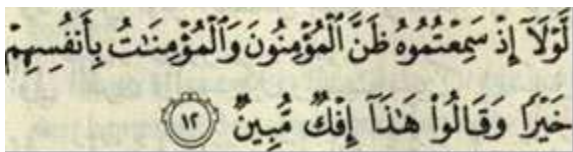 لَّوْلَآ إِذْ سَمِعْتُمُوهُ ظَنَّ ٱلْمُؤْمِنُونَ وَٱلْمُؤْمِنَٰتُ بِأَنفُسِهِمْ
خَيْرًا وَقَالُوا۟ هَٰذَآ إِفْكٌ مُّبِينٌ ١٢